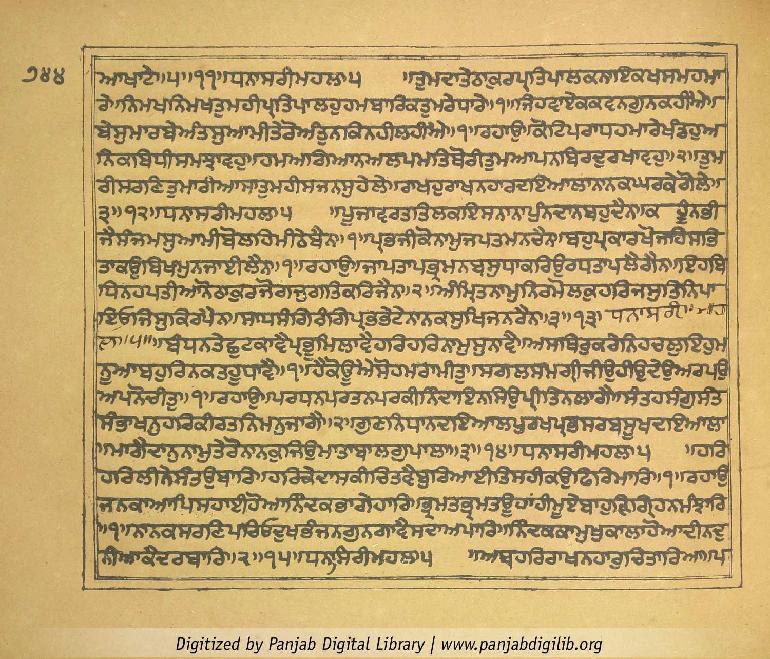 ੭੪੪
ਆਖਾਟੇ॥੫॥੧੧॥ਧਨਾਸਰੀਮਹਲਾ੫ ॥ਤੁਮਦਾਤੇਠਾਕੁਰਪ੍ਰਤਿਪਾਲਕਨਾਇਕਖਸਮਹਮਾ
ਰੇ॥ਨਿਮਖਨਿਮਖਤੁਮਹੀਪ੍ਰਤਿਪਾਲਹੁਹਮਬਾਰਿਕਤੁਮਰੇਧਾਰੇ॥੧॥ਜਿਹਵਾਏਕਕਵਨਗੁਨਕਹੀਐ॥
ਬੇਸੁਮਾਰਬੇਅੰਤਸੁਆਮੀਤੇਰੋਅੰਤੁਨਕਿਨਹੀਲਹੀਐ॥੧॥ਰਹਾਉ॥ਕੋਟਿਪਰਾਧਹਮਾਰੇਖੰਡਹੁਅ
ਨਿਕਬਿਧੀਸਮਝਾਵਹੁ॥ਹਮਅਗਿਆਨਅਲਪਮਤਿਥੋਰੀਤੁਮਆਪਨਬਿਰਦੁਰਖਾਵਹੁ॥੨॥ਤੁਮ
ਰੀਸਰਣਿਤੁਮਾਰੀਆਸਾਤੁਮਹੀਸਜਨਸੁਹੇਲੇ॥ਰਾਖਹੁਰਾਖਨਹਾਰਦਇਆਲਾਨਾਨਕਘਰਕੇਗੋਲੇ॥
੩॥੧੨॥ਧਨਾਸਰੀਮਹਲਾ੫ ॥ਪੂਜਾਵਰਤਤਿਲਕਇਸਨਾਨਾਪੁੰਨਦਾਨਬਹੁਦੈਨ॥ਕ ਹੂੰਨਭੀ
ਜੈਸੰਜਮਸੁਆਮੀਬੋਲਹਿਮੀਠੇਬੈਨ॥੧॥ਪ੍ਰਭਜੀਕੋਨਾਮੁਜਪਤਮਨਚੈਨ॥ਬਹੁਪ੍ਰਕਾਰਖੋਜਹਿਸਭਿ
ਤਾਕਉਬਿਖਮੁਨਜਾਈਲੈਨ॥੧॥ਰਹਾਉ॥ਜਾਪਤਾਪਭ੍ਰਮਨਬਸੁਧਾਕਰਿਉਰਧਤਾਪਲੈਗੈਨ॥ਇਹਬਿ
ਧਿਨਹਪਤੀਆਨੋਠਾਕੁਰਜੋਗਜੁਗਤਿਕਰਿਜੈਨ॥੨॥ਅੰਮ੍ਰਿਤਨਾਮੁਨਿਰਮੋਲਕੁਹਰਿਜਸੁਤਿਨਿਪਾ
ਇਓਜਿਸੁਕਿਰਪੈਨ॥ਸਾਧਸੰਗਿਰੰਗਿਪ੍ਰਭਭੇਟੇਨਾਨਕਸੁਖਿਜਨਰੈਨ॥੩॥੧੩॥ਧਨਾਸਰੀ॥ਮਹ
ਲਾ॥੫॥॥ਬੰਧਨਤੇਛੁਟਕਾਵੈਪ੍ਰਭੂਮਿਲਾਵੈਹਰਿਹਰਿਨਾਮੁਸੁਨਾਵੈ॥ਅਸਥਿਰੁਕਰੇਨਿਹਚਲੁਇਹੁਮ
ਨੂਆਬਹੁਰਿਨਕਤਹੂਧਾਵੈ॥੧॥ਹੈਕੋਊਐਸੋਹਮਰਾਮੀਤੁ॥ਸਗਲਸਮਗ੍ਰੀਜੀਉਹੀਉਦੇਉਅਰਪਉ
ਅਪਨੋਚੀਤੁ॥੧॥ਰਹਾਉ॥ਪਰਧਨਪਰਤਨਪਰਕੀਨਿੰਦਾਇਨਸਿਉਪ੍ਰੀਤਿਨਲਾਗੈ॥ਸੰਤਹਸੰਗੁਸੰਤ
ਸੰਭਾਖਨੁਹਰਿਕੀਰਤਨਿਮਨੁਜਾਗੈ॥੨॥ਗੁਣਨਿਧਾਨਦਇਆਲਪੁਰਖਪ੍ਰਭਸਰਬਸੂਖਦਇਆਲਾ
॥ਮਾਗੈਦਾਨੁਨਾਮੁਤੇਰੋਨਾਨਕੁਜਿਉਮਾਤਾਬਾਲਗੁਪਾਲਾ॥੩॥੧੪॥ਧਨਾਸਰੀਮਹਲਾ੫ ॥ਹਰਿ
ਹਰਿਲੀਨੇਸੰਤਉਬਾਰਿ॥ਹਰਿਕੇਦਾਸਕੀਚਿਤਵੈਬੁਰਿਆਈਤਿਸਹੀਕਉਫਿਰਿਮਾਰਿ॥੧॥ਰਹਾਉ
ਜਨਕਾਆਪਿਸਹਾਈਹੋਆਨਿੰਦਕਭਾਗੇਹਾਰਿ॥ਭ੍ਰਮਤਭ੍ਰਮਤਊਹਾਂਹੀਮੂਏਬਾਹੁੜਿਗ੍ਰਿਹਿਨਮੰਝਾਰਿ
॥੧॥ਨਾਨਕਸਰਣਿਪਰਿਓਦੁਖਭੰਜਨਗੁਨਗਾਵੈਸਦਾਅਪਾਰਿ॥ਨਿੰਦਕਕਾਮੁਖੁਕਾਲਾਹੋਆਦੀਨਦੁ
ਨੀਆਕੈਦਰਬਾਰਿ॥੨॥੧੫॥ਧਨਾਸਿਰੀਮਹਲਾ੫ ॥ਅਬਹਰਿਰਾਖਨਹਾਰੁਚਿਤਾਰਿਆ॥ਪ
Digitized by Panjab Digital Library | www.panjabdigilib.org